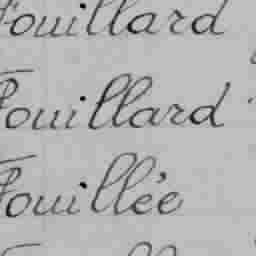 Fouillard
Fouillard
Fouillée